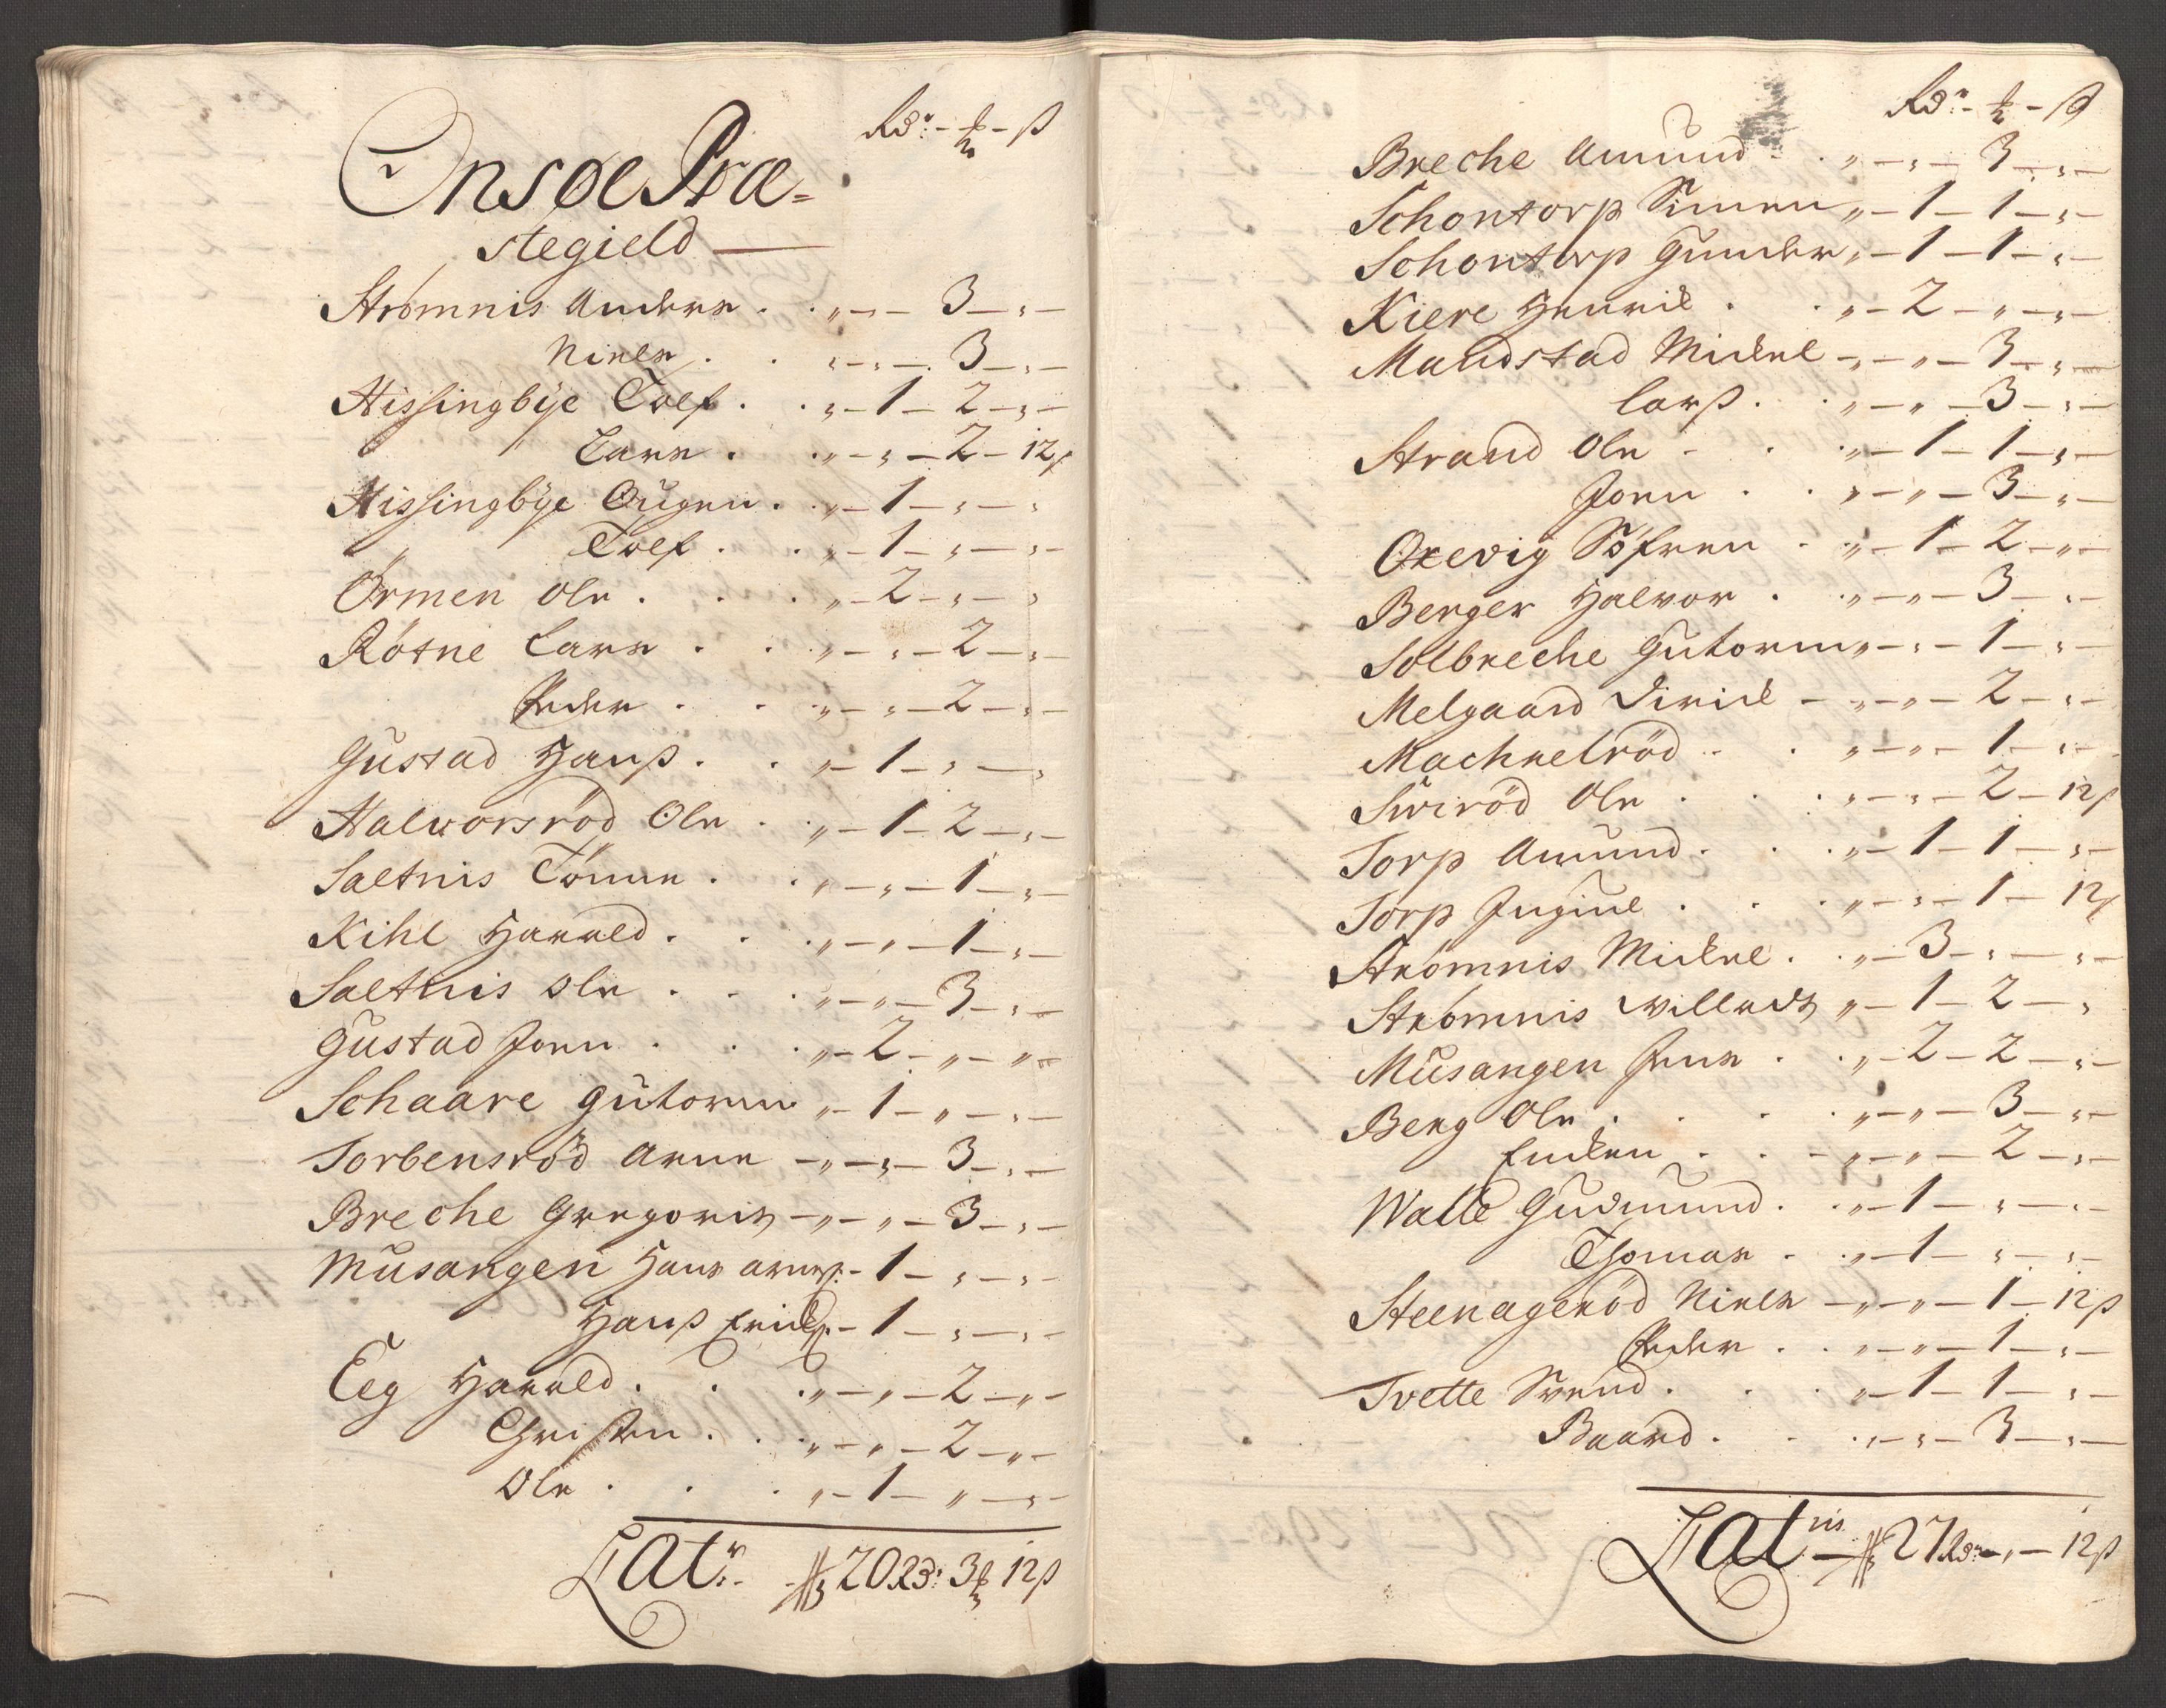 Rdr - ß
Onsøe Præ=
stegield
Strömnis Anders . . „ — — 3 — „ —
Niels . . „ — „ — 3 — „ —
Hissingbÿe Tolf . . „ — 1 — 2 — „ —
Lars . . „ — „ — 2 — 12ß
Hissingbÿe Ougen . . „ — 1 — „ — „
„ Tolf . . „ — 1 — „ — „ —
Ormen Ole . . . „ — 2 — „ — „
Rötne Lars . . „ — „ — 2 — „ —
Peder . . „ — „ — 2 — „ —
Gustad Hanß . . „ — 1 — „ — „
Halworsröd Ole . . „ — 1 — 2 — „ —
Saltnis Tönne . . „ — „ — 1 — „ —
Kihl Harald . . . „ — „ — 1 — „ —
Saltnis Ole . . . „ — „ — 3 — „ —
Gustad Joen . . . „ — 2 — „ — „ —
Schaare Gutorm „ — 1 — „ — „ —
Torbensröd Arne — „ — „ — 3 — „ —
Breche Gregoris — „ — „ — 3 — „ —
Musangen Hans arnes: — 1 — „ — „ —
Hanß Erichs: — 1 — „ — „ —
Eeg Harald . . . „ — „ — 2 — „ —
Christen . . „ — „ — 2 — „ —
Ole . . . „ — 1 — „ — „ —
Latr: 20 Rdr: 3 12ß
Rdr: - ß
Breche Amund . . „ — „ — 3 — „ —
Schontorp Simen „ — 1 — 1 — „ —
Schontorp Gunder „ — 1 — 1 — „ —
Kiere Henrik . . „ — 2 — „ — „ —
Mandstad Mickel — „ — „ — 3 — „ —
Larß . . „ — „ — 3 — „ —
Strand Ole . . . „ — 1 — 1 — „ —
Joen . . „ — „ — 3 — „ —
Oxevig Söfren . . „ — 1 — 2 — „ —
Berger Halvor . . „ — „ — 3 — „ —
Solbreche Gutorm „ — „ — 1 — „ —
Melgaard Dirik — „ — „ — 2 — „ —
Machrelröd . . „ — „ — 1 — „ —
Suriröd Ole . . . „ — „ — 2 — 12ß
Torp Amund . . . „ — 1 — 1 — „ —
Torp Jugiul . . . „ — „ — 1 — 12ß
Strömnis Mickel . . „ — 3 — „ — „ —
Strömnis Willads „ — 1 — 2 — „
Musangen Jens . . „ — 2 — 2 — „ —
Berg Ole . . . . „ — „ — 3 — „ —
Enken . . — „ — „ — 2 — „ —
Walle Gudmund . . „ — 1 — „ — „ —
Thomas . . „ — 1 — „ — „ —
Steenageröd Niels — „ — „ — 1 — 12ß
Peder . . „ — „ — 1 — „ —
Tvette Svend . . . „ — 1 — 1 — „ —
Baard . . . „ — „ — 3 — „ —
Latris — 27 Rdr: — „ — 12ß